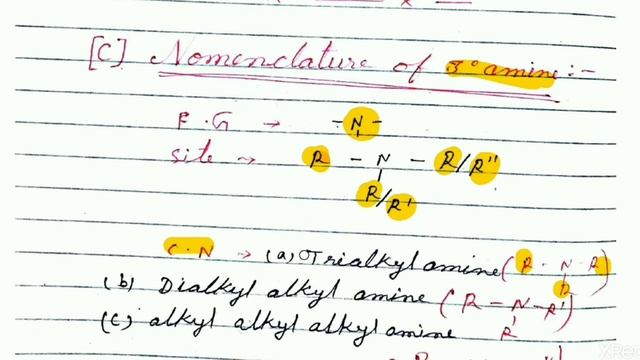 [C] Nomenclature of 3° amine :-
F.G → -N-
site → R - N - R/R"
R/R'
C.N → (a) Trialkyl amine (R - N - R)
R
(b) Dialkyl alkyl amine (R - N - R')
R
(c) alkyl alkyl alkyl amine